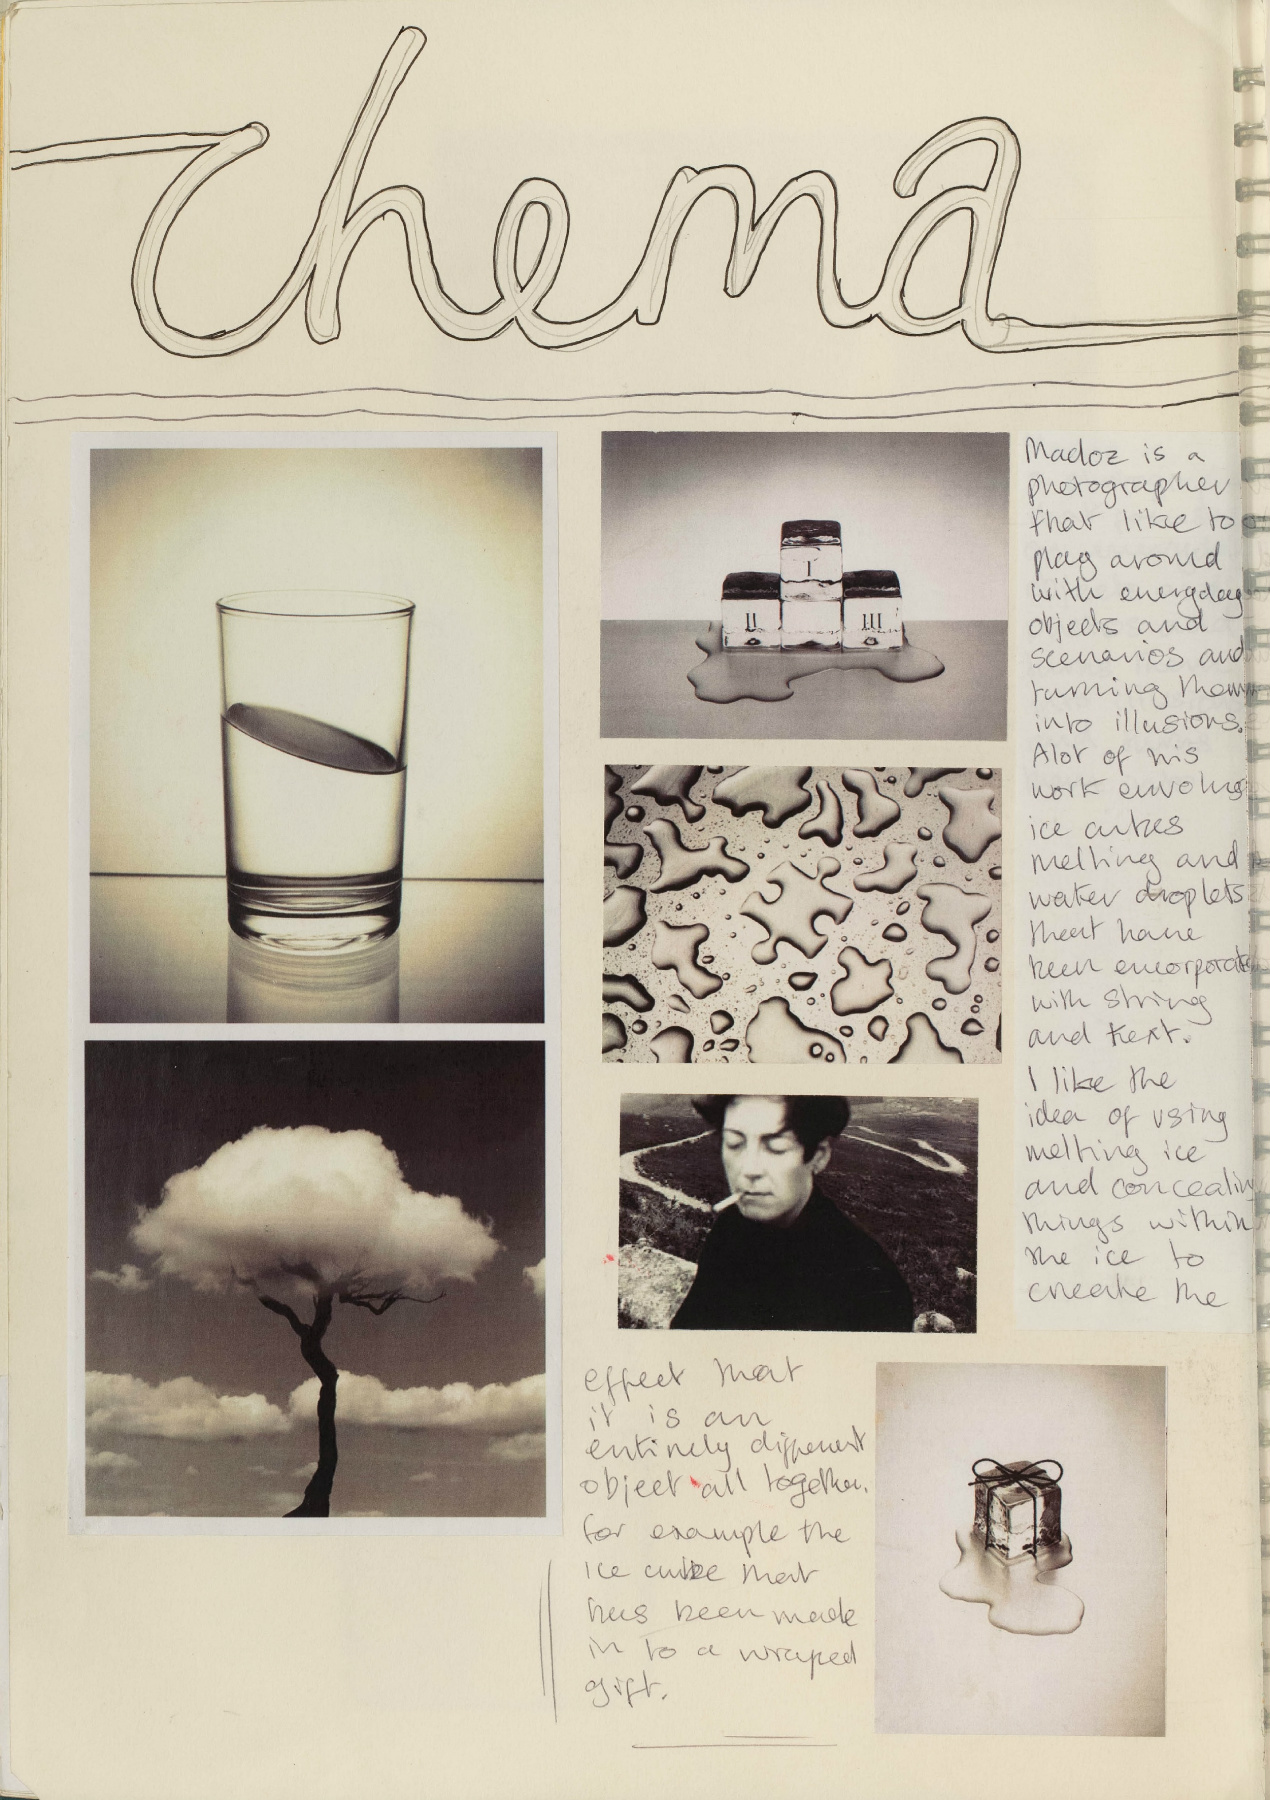 chema
I
II III
Madoz is a
photographer
that like to
play around
with everyday
objects and
scenarios and
turning them
into illusions.
Alot of his
work envolves
ice cubes
melting and
water droplets
that have
been encorporate
with string
and text.
I like the
idea of using
melting ice
and concealing
things within
the ice to
create the
effect that
it is an
entirely different
object all together.
for example the
ice cube that
has been made
in to a wraped
gift.